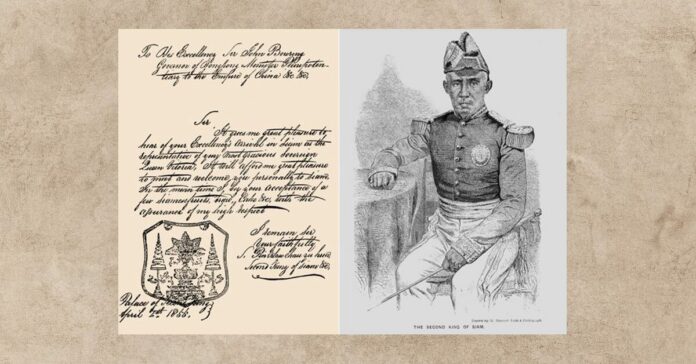 To His Excellency Sir John Bowring
Governor of Hongkong Minister Plenipoten-
tiary to the Empire of China &c &c.
Sir
It gives me great pleasure to
hear of your Excellency's arrival in Siam as the
representative of my Most Gracious Sovereign
Queen Victoria, It will afford me great pleasure
to meet and welcome you personally to Siam.
In the mean time I beg your acceptance of a
few Cakes &c. with the
assurance of my high respect
I remain Sir
Your faithfully
S. Pin Klau Chau yu hua
Second King of Siam &c.
Palace of Second King
April 2nd 1855.
Engraving by from a Photograph.
THE SECOND KING OF SIAM.